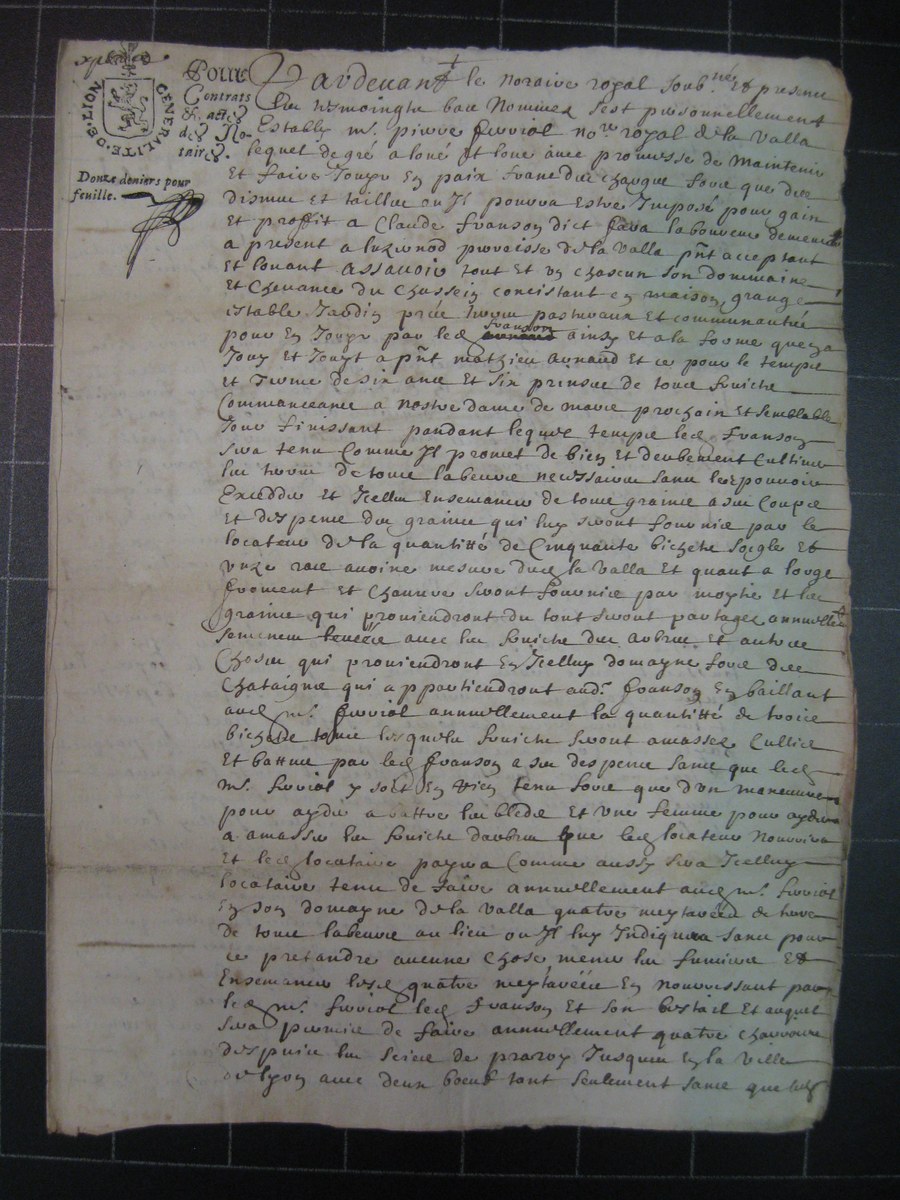 GENERALITE·D·E·LION
Pour
Contrats
& actes
des No-
taires.
Douze deniers pour
feuille.
Pardevant le notaire royal soubsné Et presents
les tesmoingts bas Nommes s'est personnellement
Estably Me pierre ferriol nore royal de la Valla
lequel de gré a loué et loue avec promesse de Maintenir
Et faire Jouyr En paix franc du chargue fors que des
disme et taillie ou Jl pourra Estre Imposé pour gain
Et proffit a Claude franson dict laboureur demeurt
a present a luzernod parroisse de la Valla pnt acceptant
Et louant assavoir tout Et un chascun son dommaine
Et Chevance du Chassein concistant en maison grange
estable Jardin prés terres pasturaux Et communautés
pour En Jouyr par led franson ainsy Et a la forme quen a
Jouy Et Jouyt a pnt mathieu arnaud Et ce pour le temps
et terme de six ans Et six prinses de tous fruicts
Commanceants a nostre dame de mars prochain Et semblable
Jour finissant pandant lequel temps led franson
sera tenu Comme Jl promet de bien Et deubement Cultiver
les terres de tous labeurs necessaires sans les pouvoir
Exceder Et Jcelles Ensemancer de tous grains a ses Coupes
Et despens des grains qui luy seront fournis par le
locateur de la quantitté de Cinquante bichets soigle Et
unze ras avoine mesure dud la Valla Et quant a lorge
froment Et chanvre seront fournis par moytié Et les
grains qui proviendront du tout seront partages annuellemt
semences levées avec les fruicts des arbres Et autres
Choses qui proviendront En Jcelluy domayne fors des
Chataignes qui appartiendront aud. franson En baillant
aud Me ferriol annuellement la quantitté de trois
bichets tous lesquels fruicts seront amasses Cullies
Et battus par led franson a ses despens sans que led
Me ferriol y soit En rien tenu fors que d'un maneuvre
pour ayder a battre les bleds Et une femme pour ayder
a amasser les fruicts d'arbres que led locateur Nourrira
Et led locataire payera Comme aussy sera Jcelluy
locataire tenu de faire annuellement aud Me ferriol
En son domayne de la Valla quatre meytarées de terre
de tous labeurs au lieu ou Jl luy Indiquera sans pour
ce pretandre aucune chose meme les fumiers Et
Ensemancer lesd quatre meytarées En nourrissant par
led Me ferriol led franson Et son bestail Et auquel
sera permis de faire annuellement quatre charrois
despuis les scies de prarey Jusques En la Ville
de lyon avec deux boeufs tout seulement sans que led